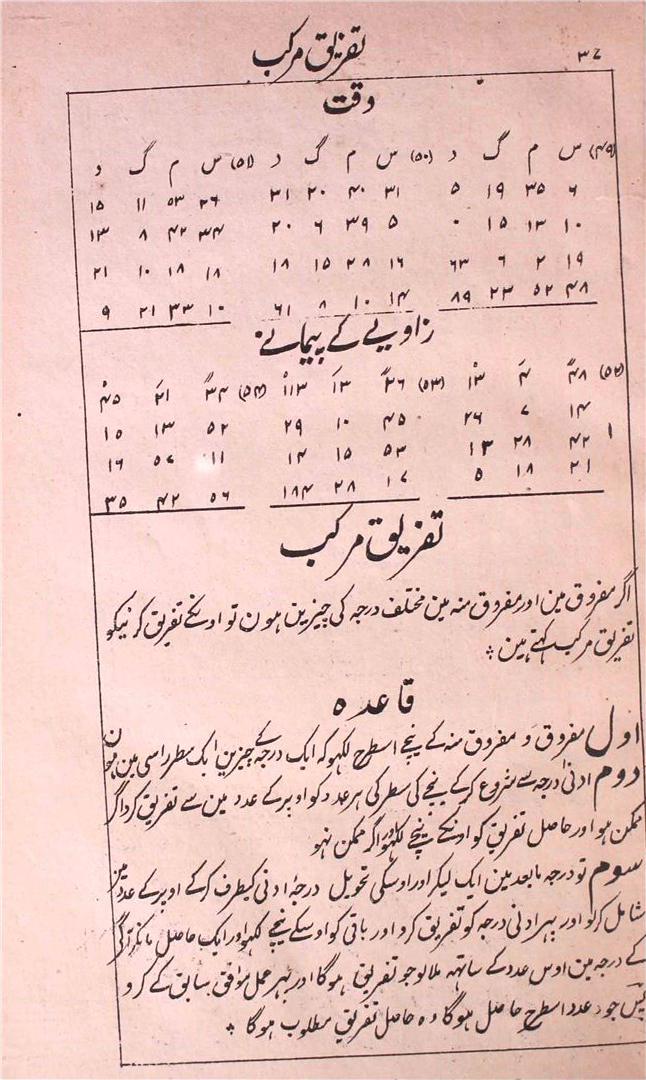 ۳۷ تفریق مرکب
وقت
(۴۹) س م گ د (۵۰) س م گ د (۵۱) س م گ د
۶ ۳۵ ۱۹ ۵ ۳۱ ۴۰ ۲۰ ۲۱ ۲۶ ۵۳ ۱۱ ۱۵
۱۰ ۱۳ ۱۵ ۰ ۵ ۳۹ ۶ ۲۰ ۳۴ ۴۲ ۸ ۱۳
۱۹ ۲ ۶ ۶۳ ۱۶ ۲۸ ۱۵ ۱۸ ۱۸ ۱۸ ۱۰ ۲۱
۴۸ ۵۲ ۲۳ ۸۹ ۱۴ ۱۰ ۸ ۶۱ ۱۰ ۳۳ ۲۱ ۹
زاویے کے پیمانے
(۵۲) ۴۸ ۴ ۳ (۵۳) ۲۶ ۱۳ ۱۱۳ (۵۴) ۳۴ ۲۱ ۴۵
۱۴ ۷ ۲۶ ۴۵ ۱۰ ۲۹ ۵۲ ۱۳ ۱۵
۴۲ ۲۸ ۱۳ ۵۳ ۱۵ ۱۴ ۱۱ ۵۷ ۱۶
۲۱ ۱۸ ۵ ۱۷ ۲۸ ۱۸۴ ۵۶ ۴۲ ۳۵
تفریق مرکب
اگر مفروق مین اور مفروق منہ مین مختلف درجہ کی چیزین ہون تو اونکے تفریق کرنیکو
تفریق مرکب کہتے ہین ٭
قاعدہ
اول مفروق و مفروق منہ کے نیچے اسطرح لکہو کہ ایک درجہ کے چیزین ایک سطر اسی مین ہون
دوم ادنیٰ درجہ سے شروع کرکے نیچے کی سطر کی ہر عدد کو اوپر کے عدد مین سے تفریق کرو اگر
ممکن ہو اور حاصل تفریق کو اونکے نیچے لکہو اور اگر ممکن نہو
سوم تو درجہ مابعد مین ایک لیکر اور اوسکی تحویل درجۂ ادنی کیطرف کرکے اوپر کے عدد مین
شامل کرلو اور پہر ادنی درجہ کو تفریق کرو اور باقی کو اوسکے نیچے لکہو اور ایک حاصل مانکر آگے
کے درجہ مین اوس عدد کے ساتہہ ملا لو جو تفریق ہوگا اور پہر عمل موافق سابق کے کرو
پس جو عدد اسطرح حاصل ہوگا وہ حاصل تفریق مطلوب ہوگا ٭